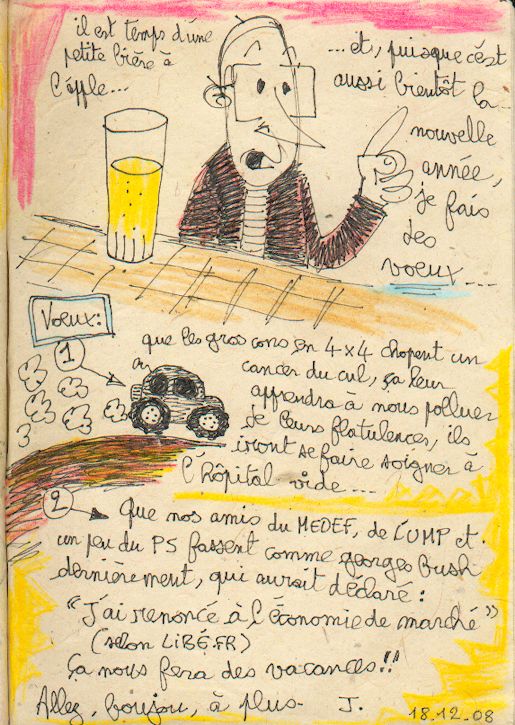 il est temps d'une
petite bière à
l'épple...
...et, puisque c'est
aussi bientôt la
nouvelle
année,
je fais
des
voeux...
Voeux:
1
que les gros cons en 4x4 chopent un
cancer du cul, ça leur
apprendra à nous polluer
de leurs flatulences, ils
iront se faire soigner à
l'hôpital vide...
2
Que nos amis du MEDEF, de l'UMP et
un peu du PS fassent comme georges Bush
dernièrement, qui aurait déclaré:
"J'ai renoncé à l'économie de marché"
(selon LIBÉ.FR)
Ça nous fera des vacances!!
Allez, boujou, à plus. J.
18.12.08